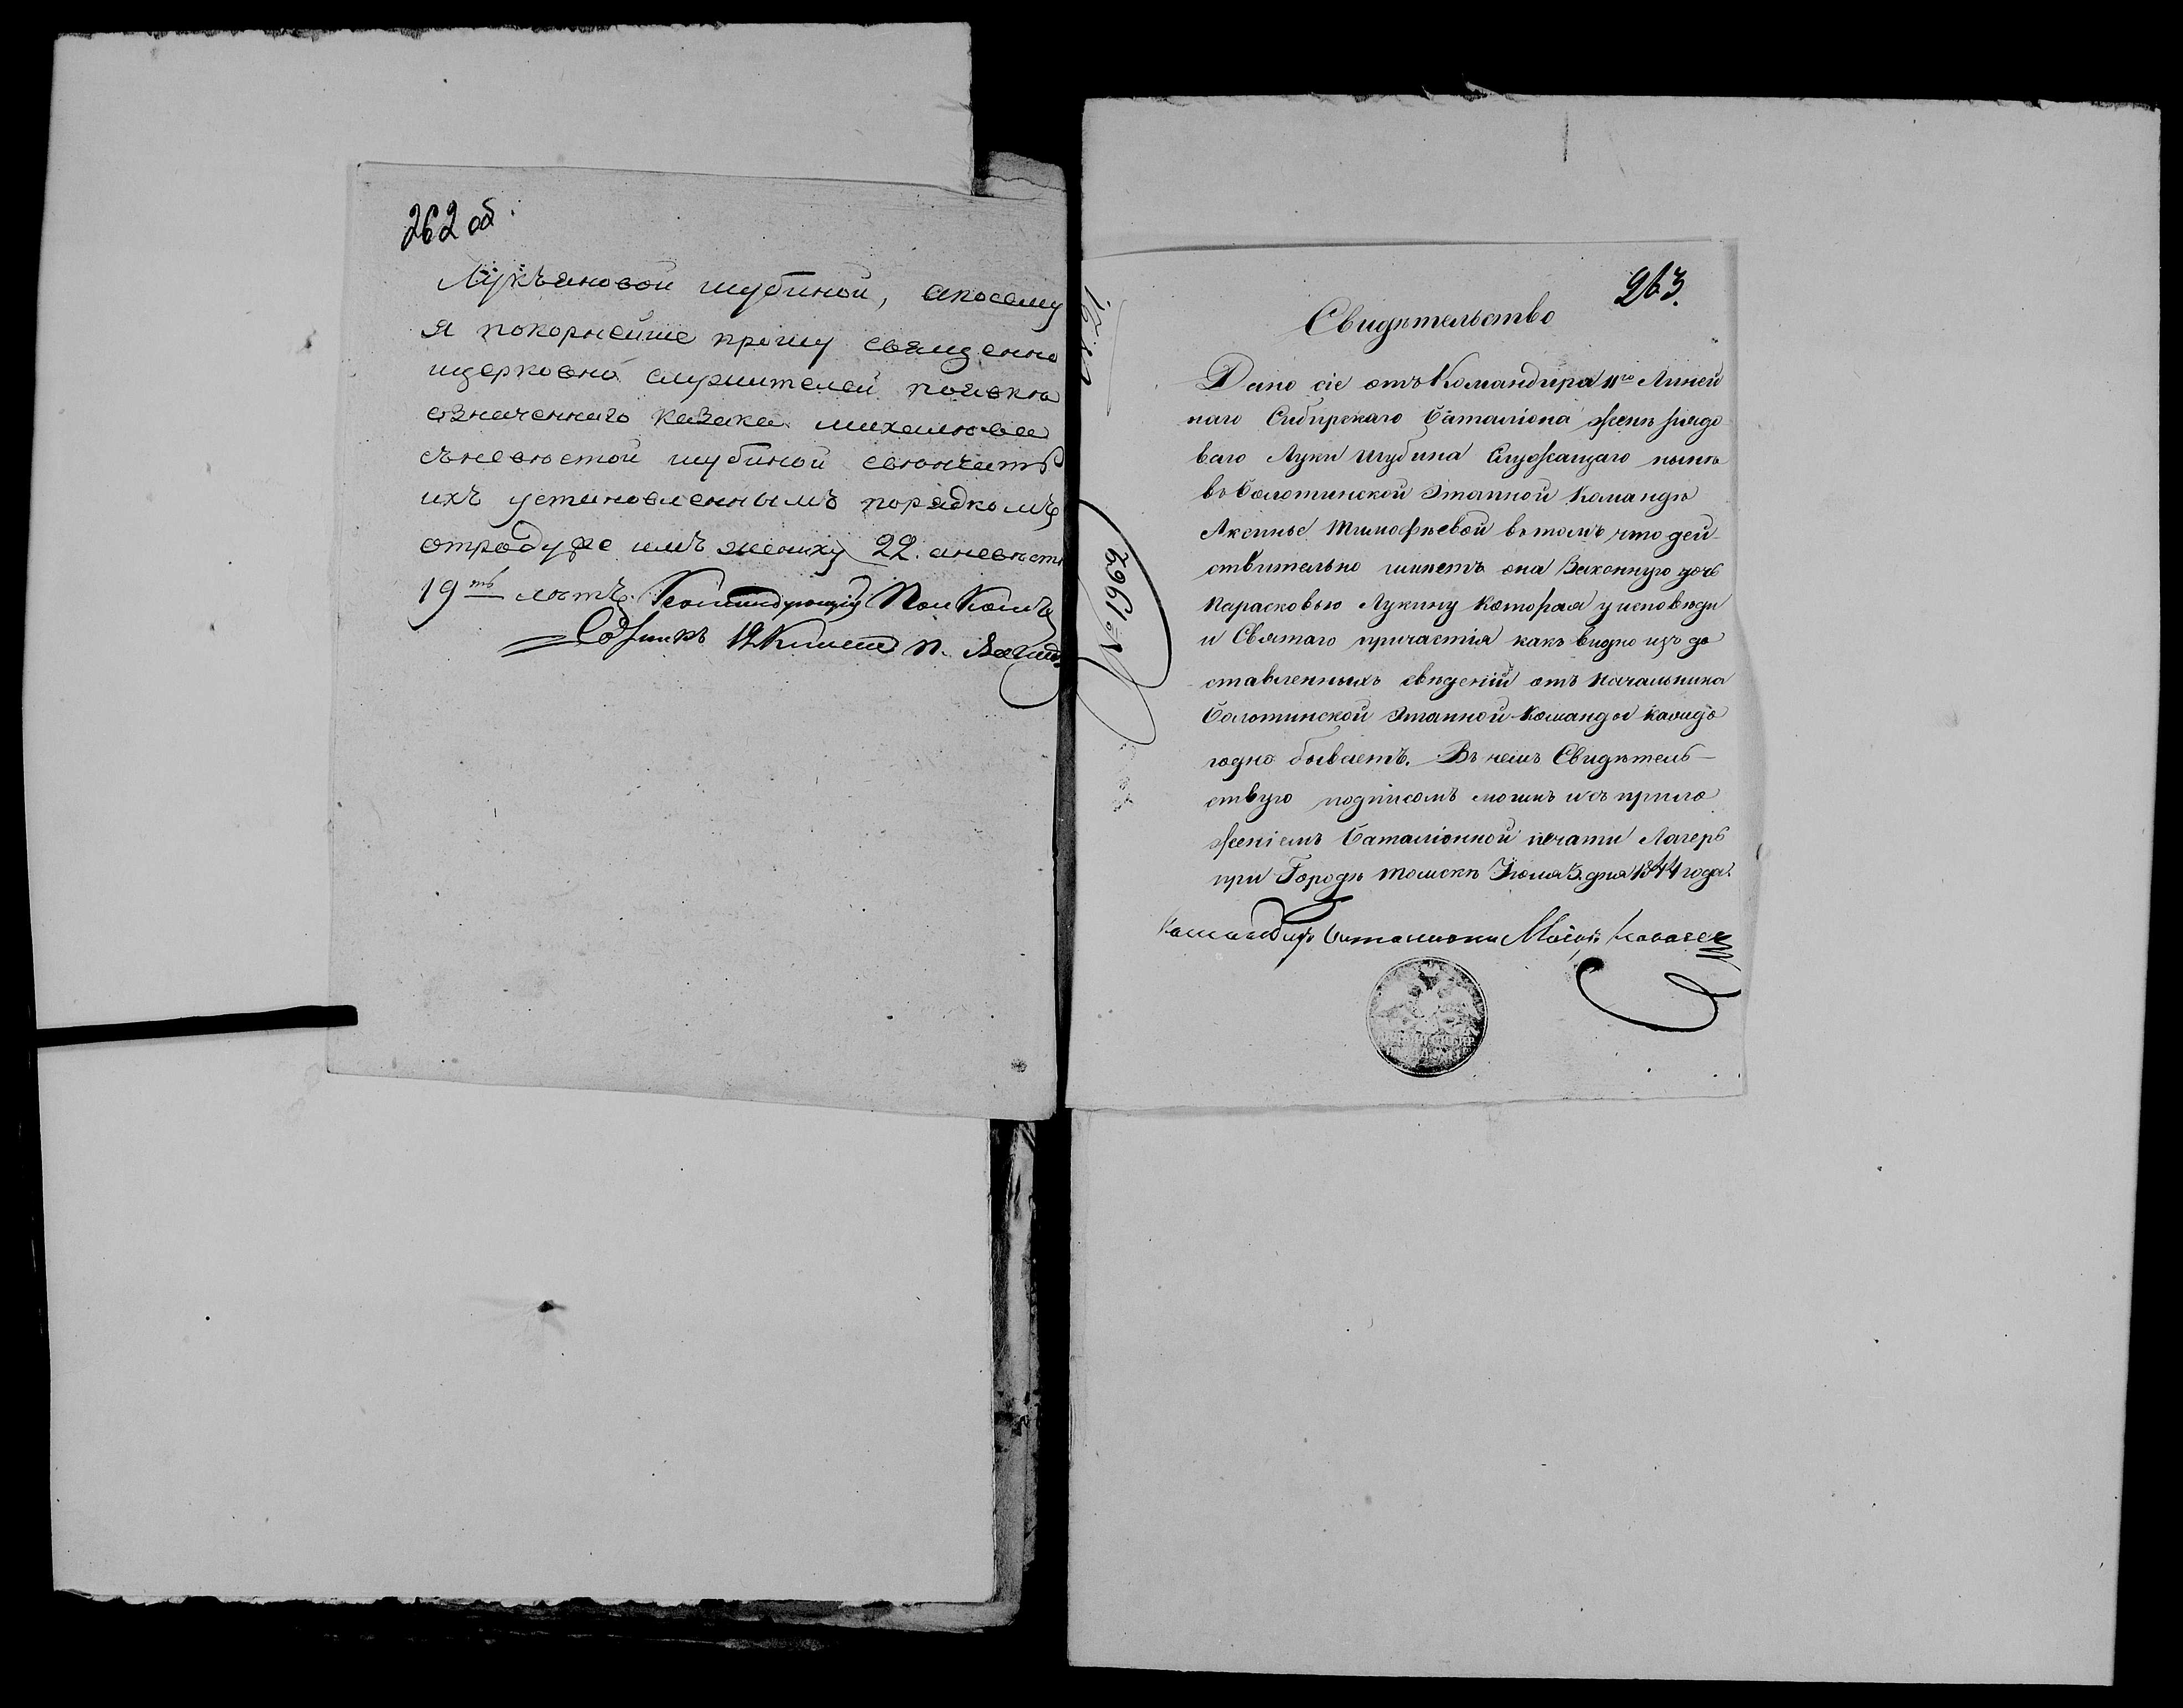 262 об.
Лукъяновой шубиной, апосему
я покорнейше прошу священно
ицерковно служителей
означеннаго казака михайлова
съневѣстой шубиной свѣнчать
ихъ установленнымъ порядкомъ
отродуже имъ жениху 22. аневѣсте
19ть лѣтъ. Командующий Полкомъ
Сотникъ
263.
Свидѣтельство
Дано сіе отъ Командира 11го Линей
наго Сибирскаго Баталіона женѣ рядо
ваго Луки Шубина Служащаго нынѣ
въ Болотинской Этапной Командѣ
Аксинье Тимофѣевой въ томъ что дей-
ствительно имѣетъ она Законную дочь
Парасковью Лукину которая у исповѣди
и Святаго причастія какъ видно изъ до
ставленныхъ свѣденій отъ Начальника
Болотинской Этапной Команды каждо
годно бываетъ. Въ чемъ Свидѣтель-
ствую подписомъ моимъ исъ прило
женіемъ Баталіонной печати Лагерь
при Городѣ Томскѣ Іюля 3. дня 1844 года.
Командиръ Баталиона Маіоръ
№ 1962